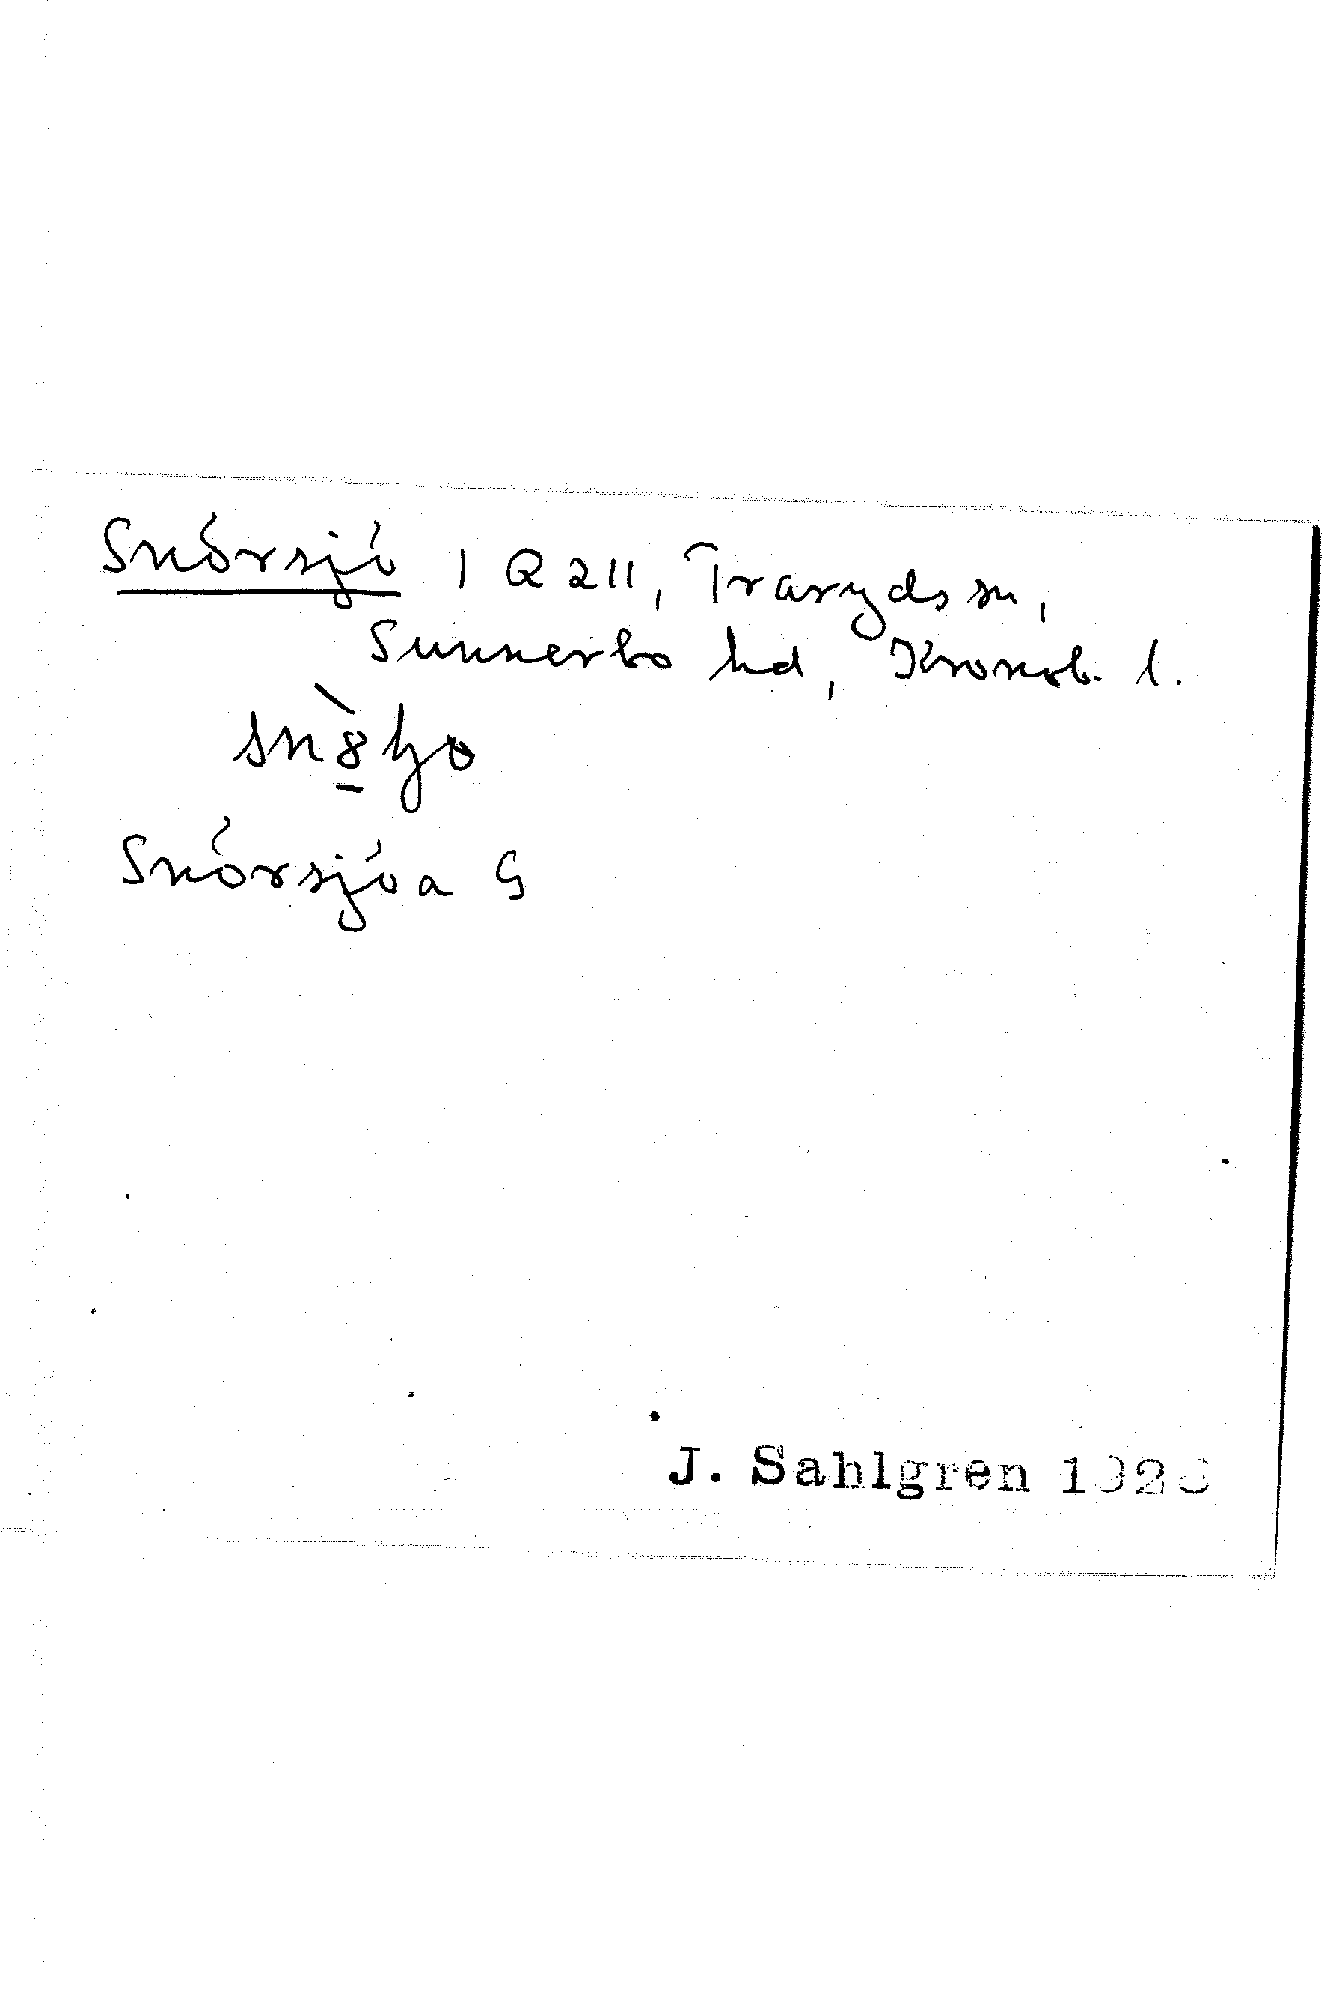 Snörsjö 1 Q 211, Traryds sn,
Sunnerbo hd, Kronob. l.
Snörsjöa G
J. Sahlgren 1928